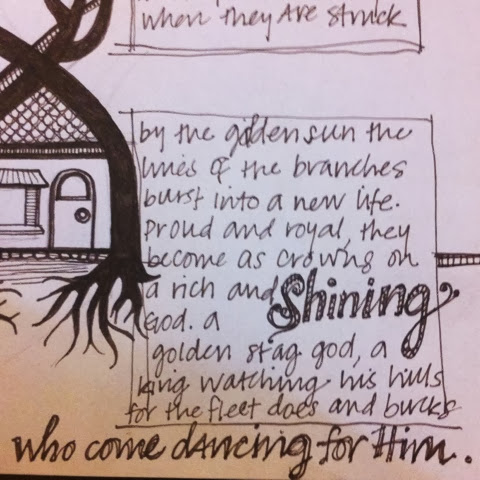 when they are struck
by the golden sun the
lines of the branches
burst into a new life.
proud and royal, they
become as crowns on
a rich and Shining
God. a
golden stag god, a
king watching his hills
for the fleet does and bucks
who come dancing for Him.